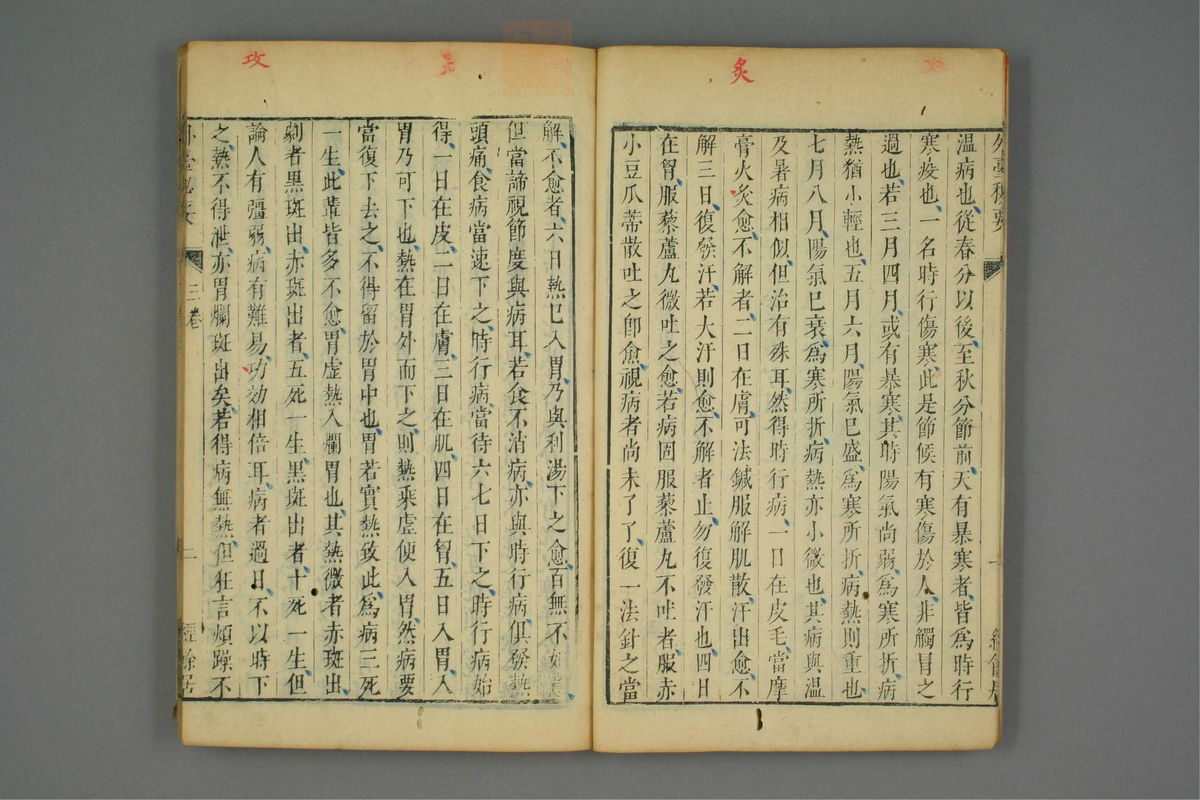 灸
外臺秘要
溫病也從春分以後至秋分節前天有暴寒者皆爲時行
寒疫也一名時行傷寒此是節候有寒傷於人非觸冒之
過也若三月四月或有暴寒其時陽氣尚弱爲寒所折病
熱猶小輕也五月六月陽氣已盛爲寒所折病熱則重也
七月八月陽氣已衰爲寒所折病熱亦小微也其病與溫
及暑病相似但治有殊耳然得時行病一日在皮毛當摩
膏火灸愈不解者二日在膚可法鍼服解肌散汗出愈不
解三日復發汗若大汗則愈不解者止勿復發汗也四日
在胷服藜蘆丸微吐之愈若病固服藜蘆丸不吐者服赤
小豆瓜蒂散吐之卽愈視病者尚未了了復一法針之當
攻
解不愈者六日熱已入胃乃與利湯下之愈百無不如
但當諦視節度與病耳若食不消病亦與時行病俱發熱
頭痛食病當速下之時行病當待六七日下之時行病始
得一日在皮二日在膚三日在肌四日在胷五日入胃入
胃乃可下也熱在胃外而下之則熱乘虛便入胃然病要
當復下去之不得留於胃中也胃若實熱致此爲病三死
一生此輩皆多不愈胃虛熱入爛胃也其熱微者赤斑出
劇者黑斑出赤斑出者五死一生黑斑出者十死一生但
論人有彊弱病有難易功効相倍耳病者過日不以時下
之熱不得泄亦胃爛斑出矣若得病無熱但狂言煩躁不
三卷
二
經餘居